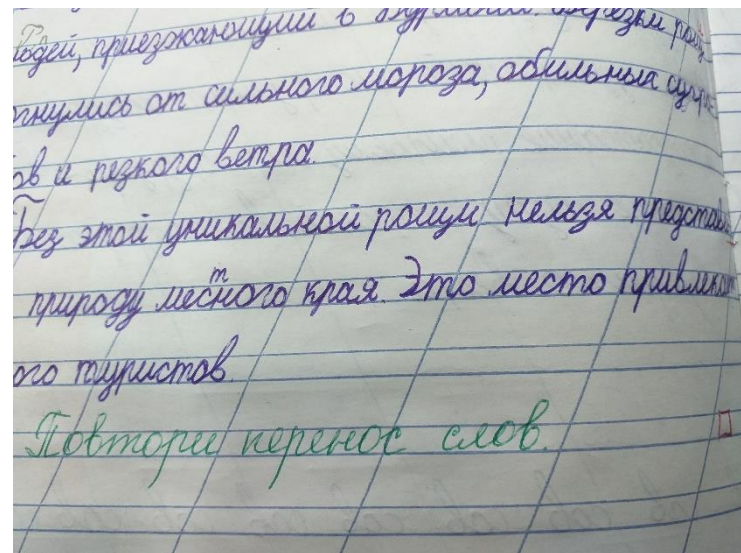 приезжающий в берёзки рощ
от сильного мороза, обильных
и резкого ветра.
Без этой уникальной рощи нельзя представи
природу местного края. Это место привлекат
ого туристов.
Повтори перенос слов.